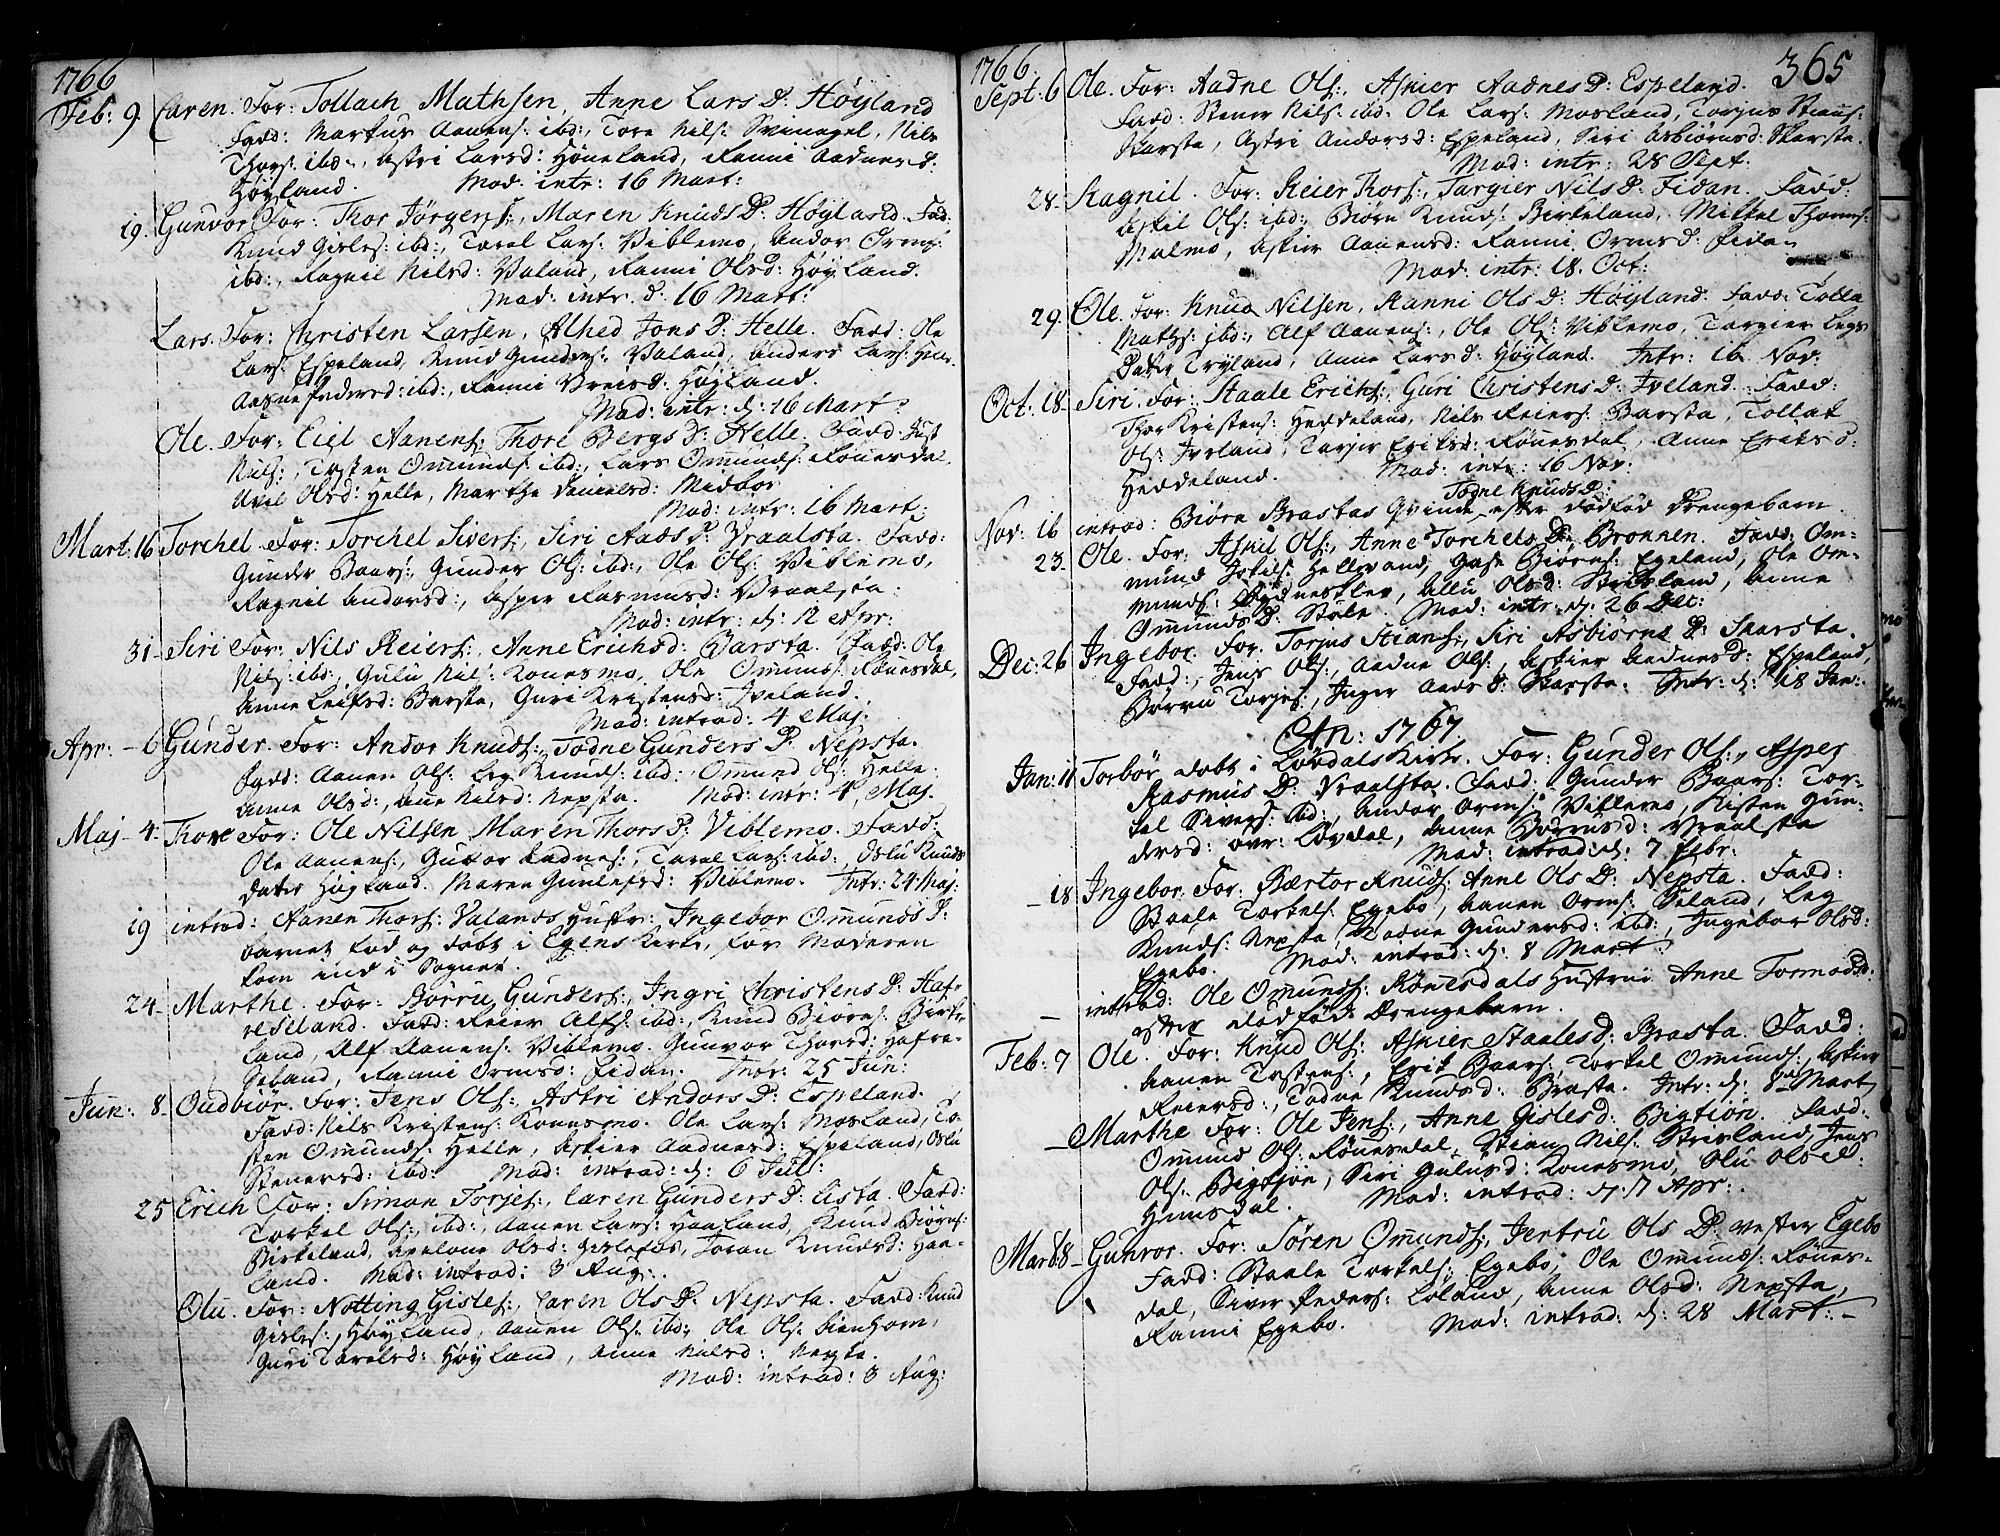 1766
Feb: 9. Caren. For: Tollach Mathsen, Anne LarsD: Høyland
Fadd: Markus Aanens: ibd:, Tore Nils: Svinagel, Nils
Thors: ibd:, Astri Larsd: Høneland, Ranni Aadnesd:
Høyland. Mod: intr: 16 Mart:
19. Gunvor For: Thor Jørgens:, Maren KnudsD: Høyland. Fad:
Knud Gisles: ibd:, Tarel Lars: Viblemo, Andor Orms:
ibd:, Ragnil Nilsd: Valand, Ranni Olsd: Høyland.
Mod: intr. d: 16 Mart:
Lars. For: Christen Larsen, Alhed JonsD: Helle. Fadd: Ole
Lars: Espeland, Knud Gunders: Valand, Anders Lars: Helle
Aasne Pedersd: ibd:, Ranni Vreisd: Høyland.
Mad: intr: d: 16 Mart:
Ole. For: Eiel Aanens: Thore BergsD: Helle. Fadd: Just
Nils:, Tosten Omunds: ibd:, Lars Omunds: Rönesdal.
Uvel Olsd: Helle, Marthe Danielsd: Medbøe
Mad: intr: 16 Mart:
Mart: 16 Torchel. For: Torchel Sivers:, Siri AadsD: Vraalsta. Fadd:
Gunder Baars:, Gunder Ols: ibd:, Ole Ols: Viblemo,
Ragnil Andorsd:, Asper Rasmusd: Vraalsta:
Mad: intr: d: 12 Apr:
31- Siri For: Nils Reiers:, Anne Erichsd: Barsta. Fadd: Ole
Nils: ibd:, Gulu Nils: Konesmo, Ole Omunds: Rönesdal,
Anne Leifsd: Barsta, Guri Kristensd: Iveland.
Mad: introd: 4 Maj:
Apr: -6 Gunder. For: Andor Knuds:, Todne GundersD: Nepsta.
Fadd: Aanen Ols: Leg Knuds: ibd:, Omund Ols: Helle:
Anne Olsd:, Ane Nilsd: Nepsta. Mod: intr: 4 Maj.
Maj- 4- Thore For: Ole Nilsen, Maren ThorsD: Viblemo. Fadd:
Ole Aanens:, Gutor Aadnes:, Tarel Lars: ibd:, Oslu Knuds
dater Høyland. Maren Gunlefsd: Viblemo. Intr: 24 Maj:
19 introd: Aanen Thors: Valands Hustr: Ingebor OmundsD:
barnet föd og döbt i Egens Kirke, för Moderen
kom ind i Sognet.
24- Marthe. For: Börru Gunders:, Ingri ChristensD: Haf-
reseland. Fadd: Reier Alfs: ibd:, Knud Biörns: Birke-
land, Alf Aanens: Viblemo. Gunvor Thorsd: Hafre-
seland, Ranni Ormsd: Fidan. Intr: 25 Jun:
Jun: 8- Oudbiör. For: Jens Ols:, Astri AndorsD: Espeland.
Fadd: Nils Kristens: Konesmo. Ole Lars: Mosland, To-
sten Omunds: Helle, Askier Aadnesd: Espeland, Oslu
Stenersd: ibd: Mod: introd: d: 6 Jul:
25 Erich For: Simon Torjes:, Caren GundersD: Eista. Fadd:
Torkel Ols:, ibd:, Aanen Lars: Haaland, Knud Biörns:
Birkeland, Apelone Olsd: Gislefos, Joran Knudsd: Haa-
land. Mad: introd: 3 Aug:.
Olu. For: Notting Gisles:, Caren OlsD: Nepsta. Fadd: Knud
Gisles:, Høyland, Aanen Ols: ibd:, Ole Ols: Lienhom,
Guri Tarelsd: Høyland, Anne Nilsd: Nepsta.
Mad: introd: 3 Aug:
1766. 365
Sept: 6 Ole. For: Aadne Ols:, Askier AadnesD: Espeland.
Fadd: Stener Nils: ibd: Ole Lars: Mosland, Torjus Stians:
Skarsta, Astri Andorsd: Espeland, Siri Asbiörnsd: Skarsta.
Mad: intr: 28 Sept.
28- Ragnil. For: Reier Thors:, Targier NilsD: Fidan. Fadd:
Askil Ols: ibd:, Biörn Knuds: Birkeland, Mikkel Thoms:
Malmo, Askier Aanensd: Ranni OrmsD: Fidan
Mad: intr: 18. Oct:
29. Ole. For: Knud Nilsen, Ranni OlsD: Høyland. Fadd: Tolla
Maths: ibd:, Alf Aanens:, Ole Ols: Viblemo, Targier Legs
Dater Tryland, Anne Larsd: Høyland. Intr: 16 Nov:
Oct: 18- Siri. For: Staale Erichs:, Guri ChristensD: Iveland. Fadd:
Thor Kristens: Heddeland, Nils Reiers: Barsta, Tollak
Ols: Iveland, Tarjer Eriksd: Rönesdal, Anne Eriksd:
Heddeland. Mad: intr: 16 Nov:
Todne KnudsD:
Nov: 16 introd: Biörn Brastas Qvinde, efter dödföd Drengebarn.
23- Ole. For: Askil Ols:, Anne TorchelsD: Bronnen. Fadd: Om-
mund Hellevand, Gase Biörns: Egeland, Ole Om-
munds: Aadnesklev, Allu Olsd: Stridsland, Anne
OmundsD: Støle. Mad: intr: d: 26 Dec:
Dec: 26 Ingebor. For: Torjus Stians:, Siri AsbiörnsD: Skarsta.
Fadd:, Jens Ols:, Aadne Ols:, Askier Aadnesd: Espeland,
Börru Torjes:, Inger Aadsd: Skarsta. Intr: d: 18 Jan:
An: 1767.
Jan: 11 Torbör, döbt i Løvdals Kirke. For: Gunder Ols:, Asper
RasmusD: Vraalsta. Fadd: Gunder Baars: Tor-
kel Sivers: ibd:, Andor Orms: Viblemo, Kisten Gun-
dersd: øvr: Løvdal, Anne Börrusd: Vraalsta
Mad: introd: d: 7 Febr:
-18 Ingebor. For: Bærtor Knuds: Anne OlsD: Nepsta. Fadd:
Staale Torkels: Egebo, Aanen Orms: Seland, Leg
Knuds: Nepsta, Todne Gundersd: ibd:, Ingebor Olsd:
Egebo. Mad: introd: d: 8 Mart:
- introd: Ole Omunds: Rönesdals Hustrui Anne Tormodsd:
efter dödföd Drengebarn.
Feb: 7 Ole. For: Knud Ols: Askier Staalesd: Brasta. Fadd:
Aanen Tostens:, Erik Baars:, Torkel Omunds:, Askier
Reiersd:, Todne Knudsd: Brasta. Intr: d: 8 Mart
- Marthe For: Ole Jens:, Anne Gislesd: Bigtjön. Fadd:
Omund Ols: Rönesdal, Stian Nils: Strisland, Jens
Ols: Bigtjön, Siri Gulusd: Konesmo, Olu Olsd:
Homsdal. Mad: introd: d: 7 Apr:
Mart: 8- Gunvor. For: Søren Omunds:, Jertru OlsD: vester Egebo
Fadd: Staale Torkels: Egebo, Ole Omunds: Rönes-
dal, Siver Peders: Loland, Anne Olsd: Nepsta,
Ranni Egebo. Mad: introd: d: 28 Mart:-